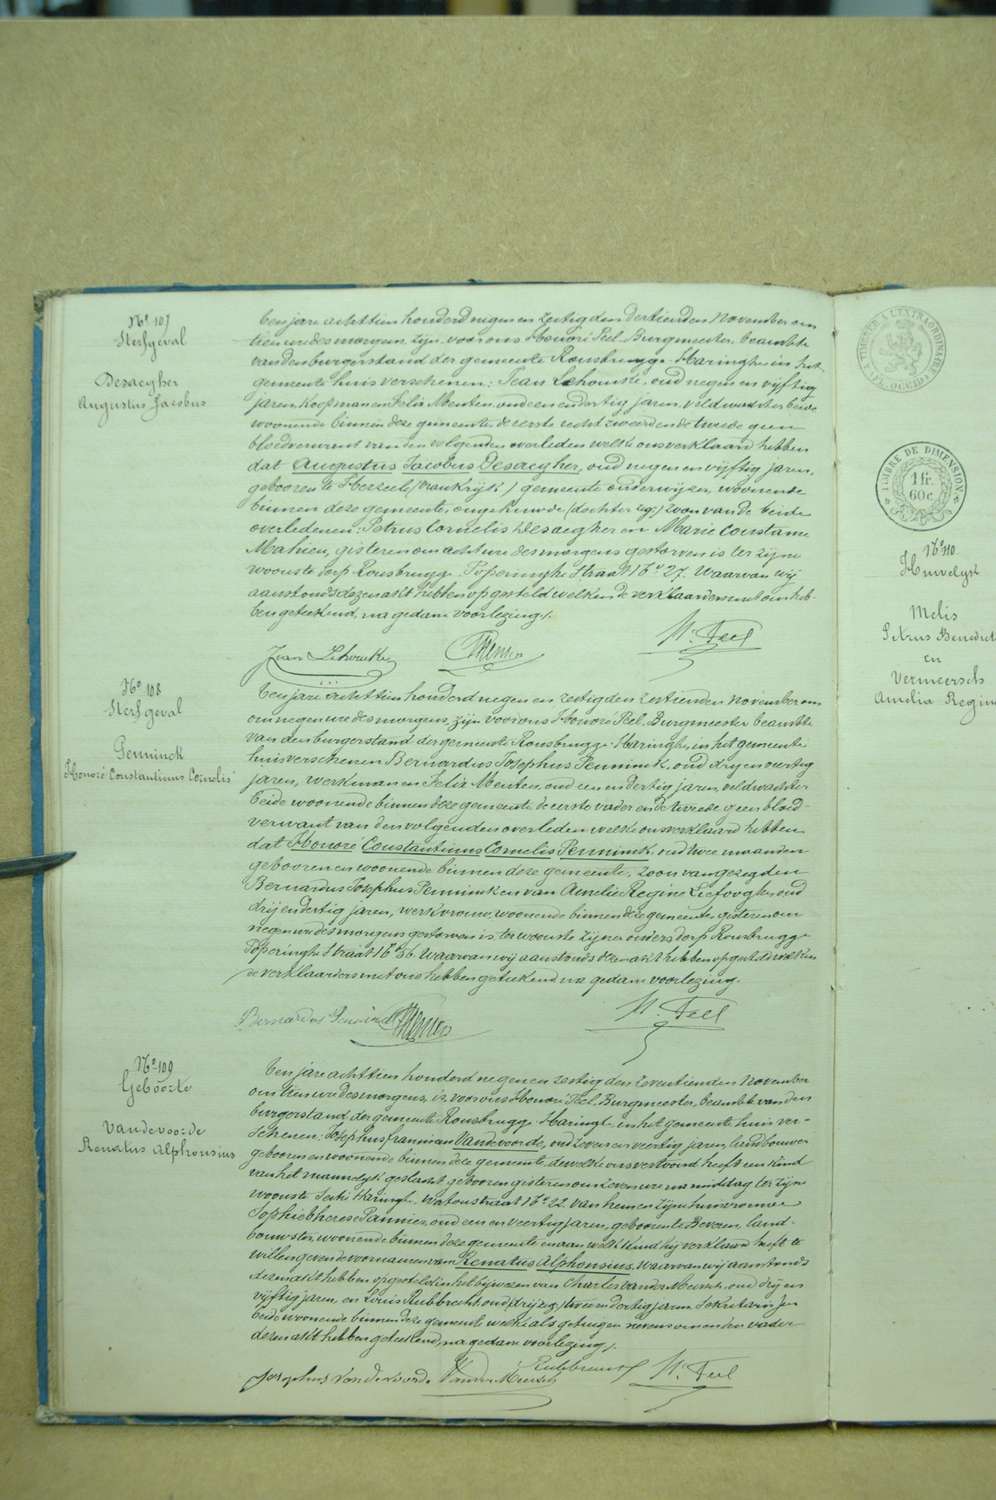 Nº 107
Sterfgeval
Desaegher
Augustus Jacobus
Ten jare achttien honderd negen en zestig den dertienden November om
tien ure des morgens, zijn voor ons Honoré Feel, Burgmeester, beambte
van den burgerstand der gemeente Rousbrugge-Haringhe in het
gemeente huis verschenen: Jean Lehoucke, oud negen en vijftig
jaren, Koopman en Felix Meuten, oud een en dertig jaren, veldwachter beide
woonende binnen deze gemeente de eerste recht zweerende tweede geen
bloedverwant van den volgenden overleden welke ons verklaard hebben
dat Augustus Jacobus Desaegher, oud negen en vijftig jaren,
gebooren te Herzeele (Frankrijk) gemeente onderwijzer, woonende
binnen deze gemeente, ongehuwde (dochter zeg:) zoon van de beide
overledenen: Petrus Cornelis Desaegher en Marie Constance
Mahieu, gisteren om acht ure des morgens gestorven is ter zijne
woonste dorp Rousbrugge Poperinghe straat Nº 27. Waarvan wij
aanstonds deze na akt hebben opgesteld welken de verklaarders met ons heb-
ben geteekend, na gedane voorlezing/.
Jean Lehoucke
H. Feel
Nº 108
Sterfgeval
Penninck
Honoré Constantinus Cornelis
Ten jare achttien honderd negen en zestig den zestienden November om
om negen ure des morgens, zijn voor ons Honoré Feel, Burgmeester beambte
van den burgerstand der gemeente Rousbrugge-Haringhe, in het gemeente
huis verschenen Bernardus Josephus Penninck, oud dry en veertig
jaren, werkman en Felix Meuten, oud een en dertig jaren, veldwachter
beide woonende binnen deze gemeente de eerste vader en de tweede geen bloed-
verwant van den volgenden overleden welke ons verklaard hebben
dat Honoré Constantinus Cornelis Penninck, oud twee maanden
gebooren en woonende binnen deze gemeente, zoon van gezegden
Bernardus Josephus Penninck en van Aurelie Regine Liefooghe, oud
drij en dertig jaren, werkvrouw, woonende binnen deze gemeente, gisteren om
negen ure des morgens gestorven is ter woonste zijner ouders dorp Rousbrugge
Poperinghe straat Nº 56. Waarvan wij aanstonds deze na akt hebben opgesteld welken
de verklaarders met ons hebben geteekend na gedane voorlezing.
Bernardus
H. Feel
Nº 109
Geboorte
Vandevoorde
Renatus Alphonsius
Ten jare achttien honderd negen en zestig den zeventienden November
om tien ure des morgens, is voor ons Honoré Feel, Burgmeester, beambte van den
burgerstand der gemeente Rousbrugge-Haringhe, in het gemeente huis ver-
schenen: Josephus Franciscus Vandevoorde, oud zeven en veertig jaren, landbouwer
gebooren en woonende binnen deze gemeente, dewelke ons vertoond heeft een kind
van het mannelyk geslacht, gebooren gisteren om zeven ure na middag ter zijne
woonste Sectie Haringhe, Watoustraat Nº 22 van hem en zijne huisvrouwe
Sophie Therese Pannier, oud een en veertig jaren, gebooren te Beveren, land-
bouwster, woonende binnen deze gemeente en aan welk kind hij verklaard heeft te
willen geven de voornamen van Renatus Alphonsius. Waarvan wij aanstonds
deze na akt hebben opgesteld in het bijwezen van Charles van der Meersch, oud drij en
vijftig jaren, en Louis Rubbrecht, oud (drij zeg:) twee en dertig jaren, Sekretaris
beide woonende binnen deze gemeente welke als getuigen nevens ons en den vader
deze na akt hebben geteekend, na gedane voorlezing/.
Josephus Vandevoorde Vander Meersch Rubbrecht H. Feel
TIMBRE A L'EXTRAORDINAIRE
FL. OCCID.
TIMBRE DE DIMENSION
1 fr.
60 c.
Nº 110
Huwelyk
Melis
Petrus Benedict
en
Vermeersch
Amelia Regin